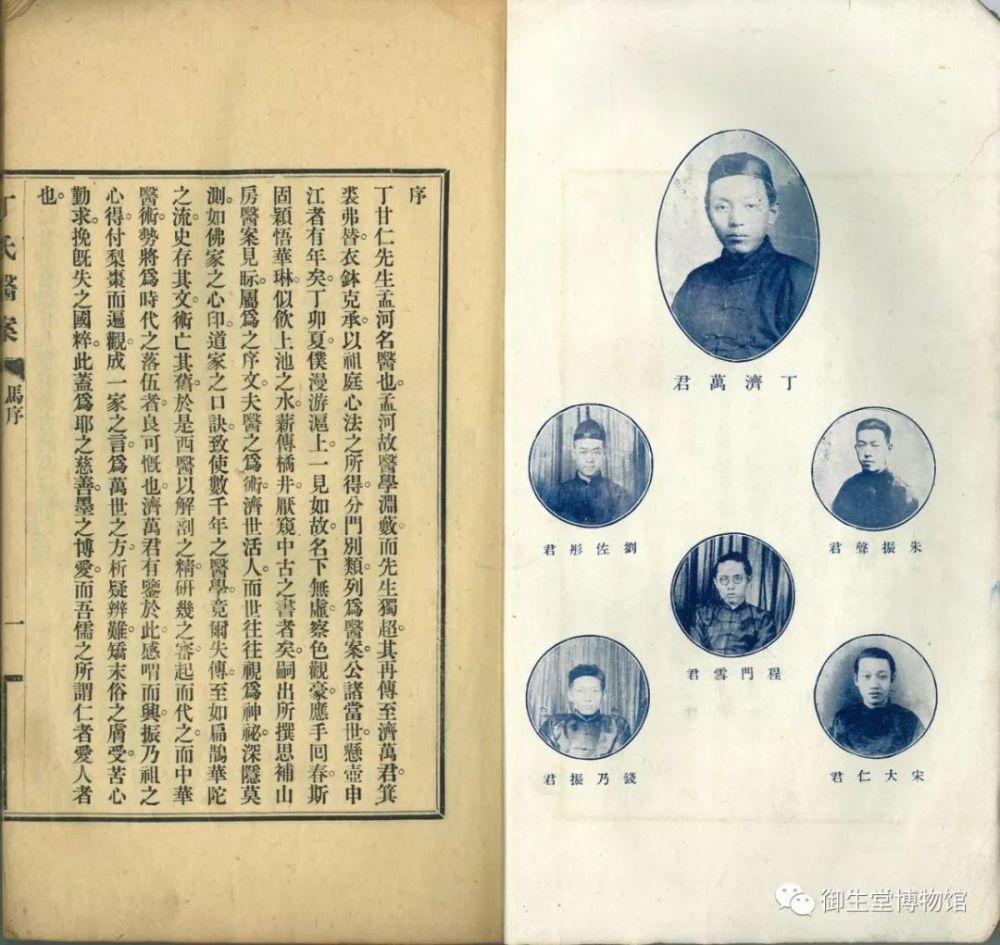 丁濟萬君
朱振聲君
劉佐彤君
程門雪君
宋大仁君
錢乃振君
序
丁甘仁先生孟河名醫也。孟河故醫學淵藪。而先生獨超。其再傳至濟萬君。箕
裘弗替。衣鉢克承。以祖庭心法之所得。分門別類。列爲醫案。公諸當世。懸壺申
江者有年矣。丁卯夏。僕漫游滬上。一見如故。名下無虛。察色觀豪。應手回春。斯
固穎悟華琳。似飲上池之水。薪傳橘井。厭窺中古之書者矣。嗣出所撰思補山
房醫案見眎。屬爲之序文。夫醫之爲術。濟世活人。而世往往視爲神祕。深隱莫
測。如佛家之心印。道家之口訣。致使數千年之醫學。竟爾失傳。至如扁鵲華陀
之流。史存其文。術亡其舊。於是西醫以解剖之精。研幾之審。起而代之。而中華
醫術。勢將爲時代之落伍者。良可慨也。濟萬君有鑒於此。感喟而興。振乃祖之
心得。付梨棗而遍觀。成一家之言。爲萬世之方。析疑辨難。矯末俗之膚受。苦心
勤求。挽旣失之國粹。此蓋爲耶之慈善。墨之博愛。而吾儒之所謂仁者愛人者
也。
丁氏醫案
馬序
一
御生堂博物馆